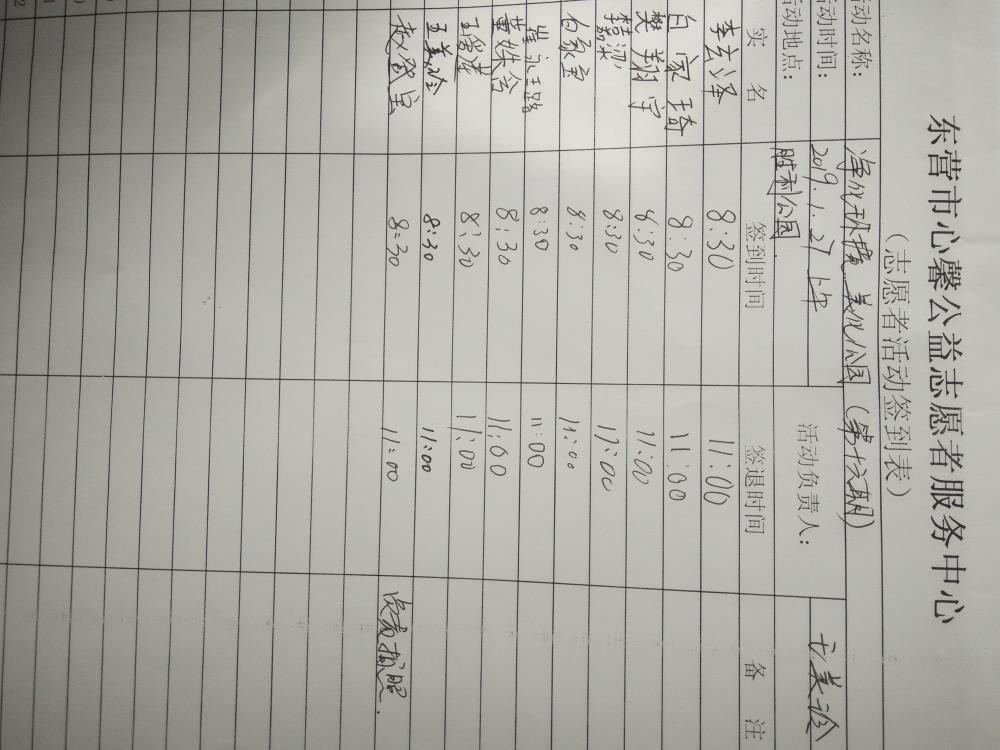 东营市心馨公益志愿者服务中心
（志愿者活动签到表）
活动名称： 净化环境 美化公园（第十六期）
活动时间： 2019.1.27 上午 活动负责人： 王美玲
活动地点： 胜利公园
实 名 签到时间 签退时间 备 注
李玄泽 8:30 11:00
白家琦 8:30 11:00
樊翔宇 8:30 11:00
8:30 11:00
白家宝 8:30 11:00
崔永璐 8:30 11:00
董姝含 8:30 11:00
8:30 11:00
王美玲 8:30 11:00
赵登宝 8:30 11:00 负责拍照.